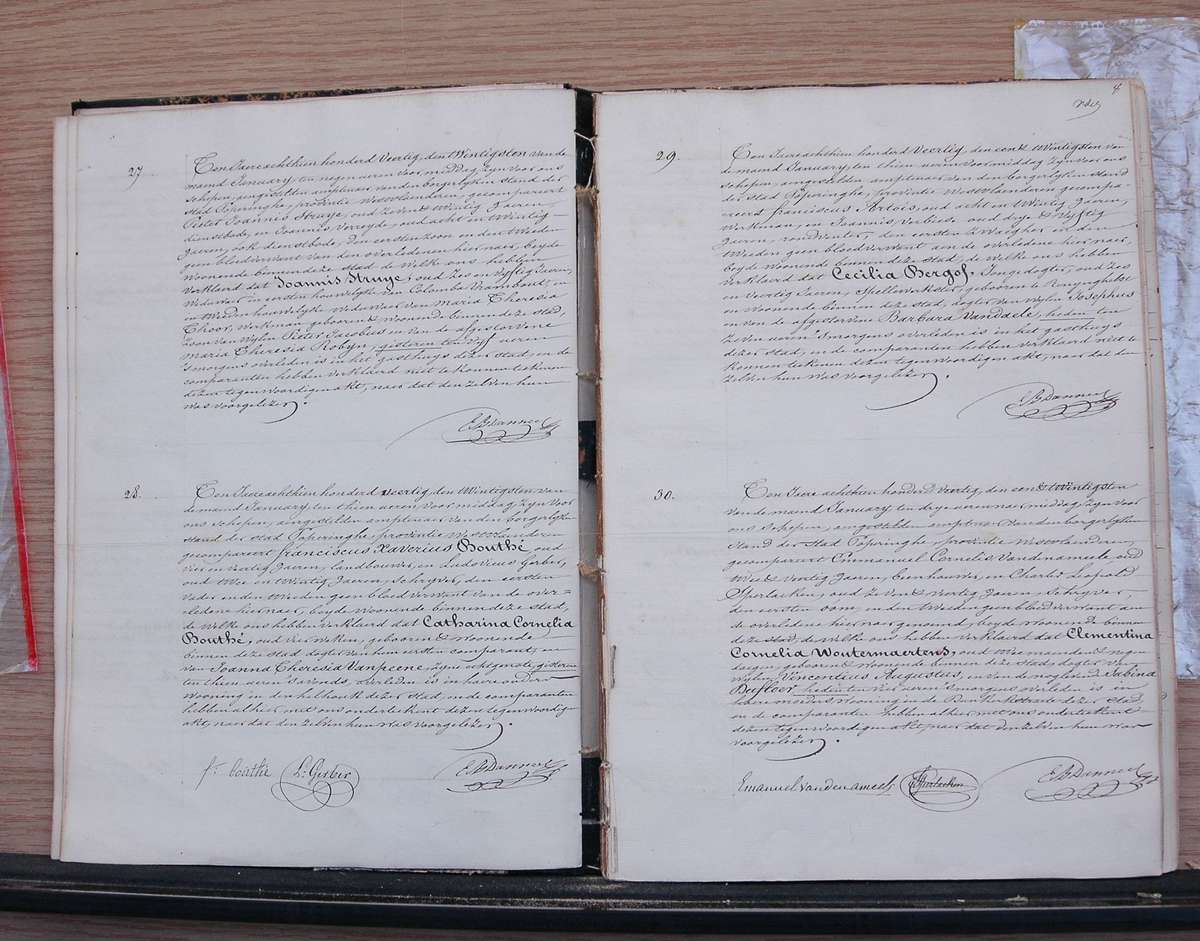 27
Ten Jaere achthien honderd Veertig, den twintigsten van de
maend January, ten negen ueren voor middag, zyn voor ons
schepen, aengestelden amptenaer van den borgerlyken stand der
stad Poperinghe, provintie Westvlaenderen, gecompareert
Pieter Joannis Struye, oud Zeven & twintig Jaeren,
dienstbode, en Joannis Verreyde, oud acht en twintig
Jaeren, ook dienstbode, den eersten zoon en den tweeden
geen bloedverwant van den overleden hier naer, beyde
woonende binnen deze stad, de welke ons hebben
verklaerd dat Joannis Struye, oud Zes en vyftig Jaeren,
Weduwaer in eersten houwelyke van Colomba Vramboutz, en
in tweeden houwelyke Weduwaer van Maria Theresia
Choor, werkman, geboren & woonende binnen deze stad,
Zoon van wylen Pieter Jacobus en van de afgestorvene
Maria Theresia Robyn, gisteren ten vyf ueren
Smorgens overleden is in het gasthuys dezer stad, en de
comparanten hebben verklaerd niet te konnen teekenen
dezen tegenwoordigen akt, naer dat den zelven hun
was voorgelezen.
E. B. Danneel
28.
Ten Jaere achthien honderd veertig, den twintigsten van
de maend January, ten thien ueren, voor middag, zyn voor
ons schepen, aengestelden amptenaer van den borgerlyken
stand der stad Poperinghe, provintie Westvlaenderen
gecompareert franciscus Xaverius Bouthé, oud
vier en veertig Jaeren, landbouwer, en Ludovicus Gerber,
oud twee en twintig Jaeren, Schryver, den eersten
vader en den tweeden geen bloed verwant van de over=
ledene hier naer, beyde woonende binnen deze stad,
de welke ons hebben verklaerd dat Catharina Cornelia
Bouthé, oud vier weken, geboren & woonende
binnen deze stad, dogter van den eersten comparant, en
van Joanna Theresia Vanpeene, zyne echtgenote, gisteren
ten thien ueren 's avonds, overleden is in haere ouders
wooning in den helhoek dezer stad, en de comparanten
hebben alhier met ons onderteekent dezen tegenwoordigen
akt, naer dat den zelven hun was voorgelezen.
fr: bouthé L: Gerber E. B. Danneel
29.
Ten Jaere achthien honderd Veertig, den een & twintigsten van
de maend January, ten thien ueren voor middag, zyn voor ons
schepen, aengestelden amptenaer van den borgerlyken stand
der stad Poperinghe, provintie Westvlaenderen gecompa-
reerd franciscus Artois, oud acht en twintig Jaeren,
Werkman, en Joannis Verliese, oud drye & vyftig
Jaeren, den eersten Zwaeger en den
tweeden geen bloedverwant aen de overledene hier naer,
beyde woonende binnen deze stad, de welke ons hebben
verklaerd dat Cecilia Bergos, Jonge dogter, oud zes
en veertig Jaeren, Spellewerkster, geboren te Reninghelst
en woonende binnen deze stad, dogter van wylen Josephus
en van de afgestorvene Barbara Vandaele, heden ten
zeven ueren Smorgens overleden is in het gasthuys
dezer stad, en de comparanten hebben verklaerd niet te
konnen teekenen dezen tegenwoordigen akt, naer dat den
zelven hun was voorgelezen.
E. B. Danneel
30.
Ten Jaere achthien honderd Veertig, den een & twintigsten
van de maend January, ten drye ueren naer middag, zyn voor
ons schepen, aengestelden amptenaer van den borgerlyken
stand der stad Poperinghe, provintie Westvlaenderen,
gecompareert Emmanuel Cornelis Vandenameele, oud
twee & veertig Jaeren, beenhouwer, en Charles Leopold
Sperlaeken, oud Zeven & veertig Jaeren, Schryver,
den eersten oom, en den tweeden geen bloedverwant aen
de overledene hier naer genoemd, beyde woonende binnen
deze stad, de welke ons hebben verklaerd dat Clementina
Cornelia Woutermaertens, oud twee maenden & negen
daegen, geboren & woonende binnen deze stad, dogter van
wylen Vincentius Augustus, en van de nog levende Sabina
heden ten vier ueren Smorgens overleden is en
haere moeders wooning in de dezer stad,
en de comparanten hebben alhier met ons onderteekent
dezen tegenwoordigen akt, naer dat den zelven hun was
voorgelezen.
Emanuel vanden ameele Sperlaeken E. B. Danneel